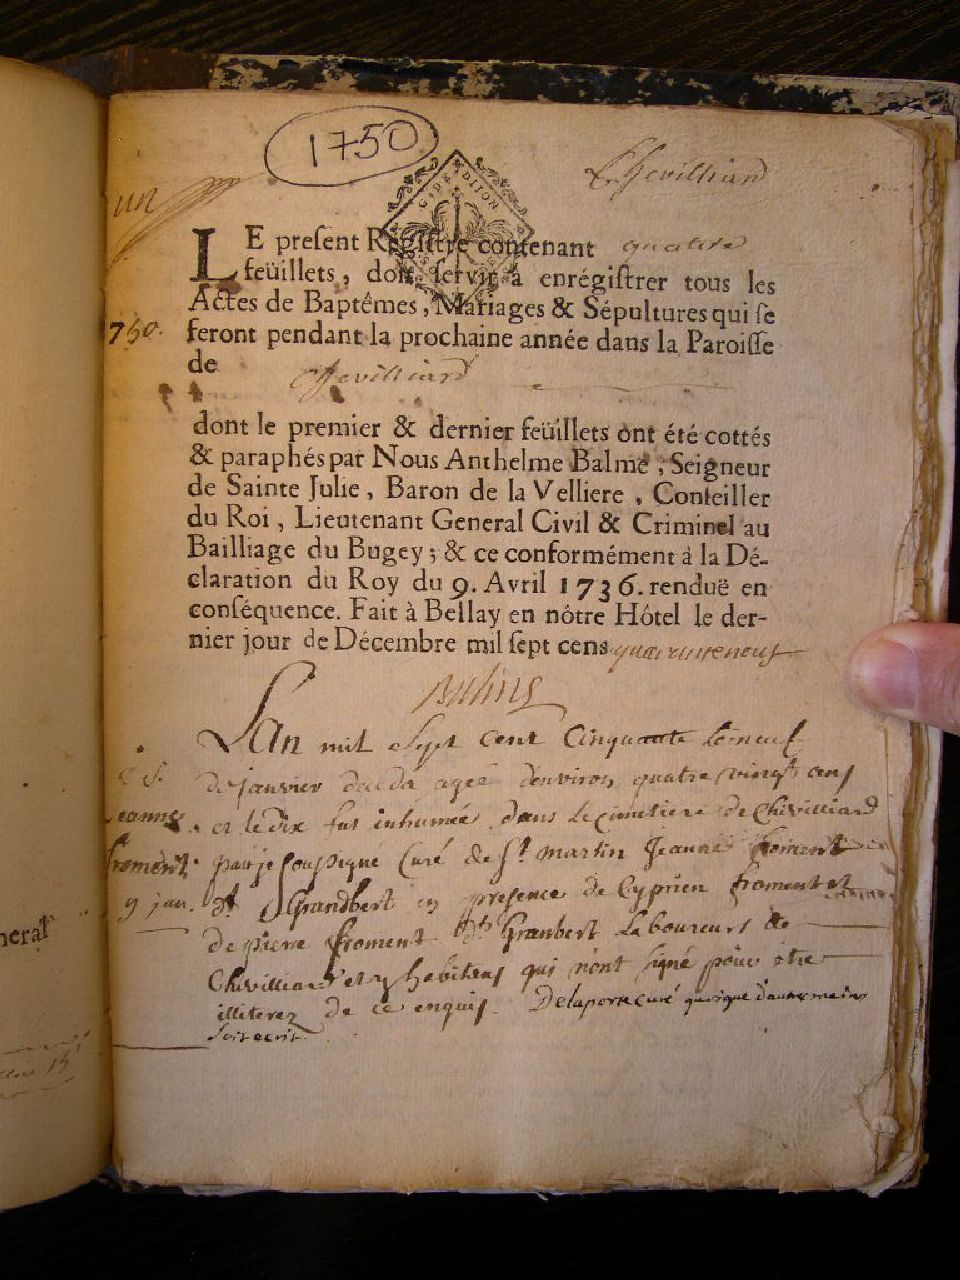 1750
Chevilliard
un
LE preſent Regiſtre contenant quatre
feüillets, doit ſervir à enrégiſtrer tous les
Actes de Baptêmes, Mariages & Sépultures qui ſe
1750.
feront pendant la prochaine année dans la Paroiſſe
de Chevilliard
dont le premier & dernier feüillets ont été cottés
& paraphés par Nous Anthelme Balme, Seigneur
de Sainte Julie, Baron de la Velliere, Conſeiller
du Roi, Lieutenant General Civil & Criminel au
Bailliage du Bugey; & ce conformément à la Dé-
claration du Roy du 9. Avril 1736. renduë en
conſéquence. Fait à Bellay en nôtre Hôtel le der-
nier jour de Décembre mil ſept cens quaranteneuf
Lan mil Sept cent Cinquante le neuf
de janvier agée denviron quatre vingt ans
Jeanne
et le dix fut inhumée dans le cimetiere de Chivilliard
froment
par je soussigné Curé de St martin Jeanne froment
9 jan.
dt Grandbert en presence de Cyprien froment et
de pierre froment dt Granbert Laboureurs de
Chivilliard et y habitens qui n'ont signé pour être
illiterez de ce enquis. Delaporte curé quoique d'autre main
soit ecrit
neral